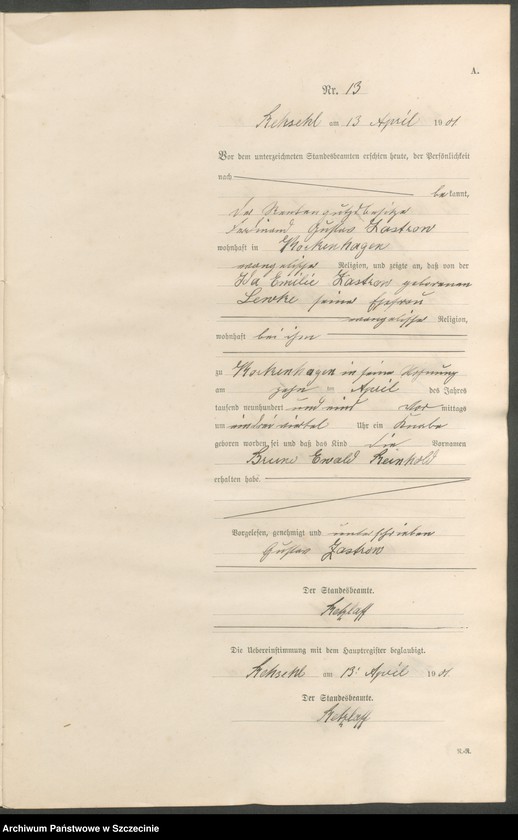 A.
Nr. 13
Rehsehl am 13 April 1901
Vor dem unterzeichneten Standesbeamten erschien heute, der Persönlichkeit
nach
bekannt,
der Rentengutsbesitzer
Ferdinand Gustav Zastrow
wohnhaft in Kockenhagen
evangelischer Religion, und zeigte an, daß von der
Ida Emilie Zastrow geborenen
Lemke seine Ehefrau
evangelischer Religion,
wohnhaft bei ihm
zu Kockenhagen in seine Wohnung
am zehn ten April des Jahres
tausend neunhundert und eins Vor mittags
um ein drei viertel Uhr ein Knabe
geboren worden sei und daß das Kind die Vornamen
Bruno Ewald Reinhold
erhalten habe.
Vorgelesen, genehmigt und unterschrieben
Gustav Zastrow
Der Standesbeamte.
Retzlaff
Die Uebereinstimmung mit dem Hauptregister beglaubigt.
Rehsehl am 13. April 1901.
Der Standesbeamte.
Retzlaff
N.-R.
Archiwum Państwowe w Szczecinie